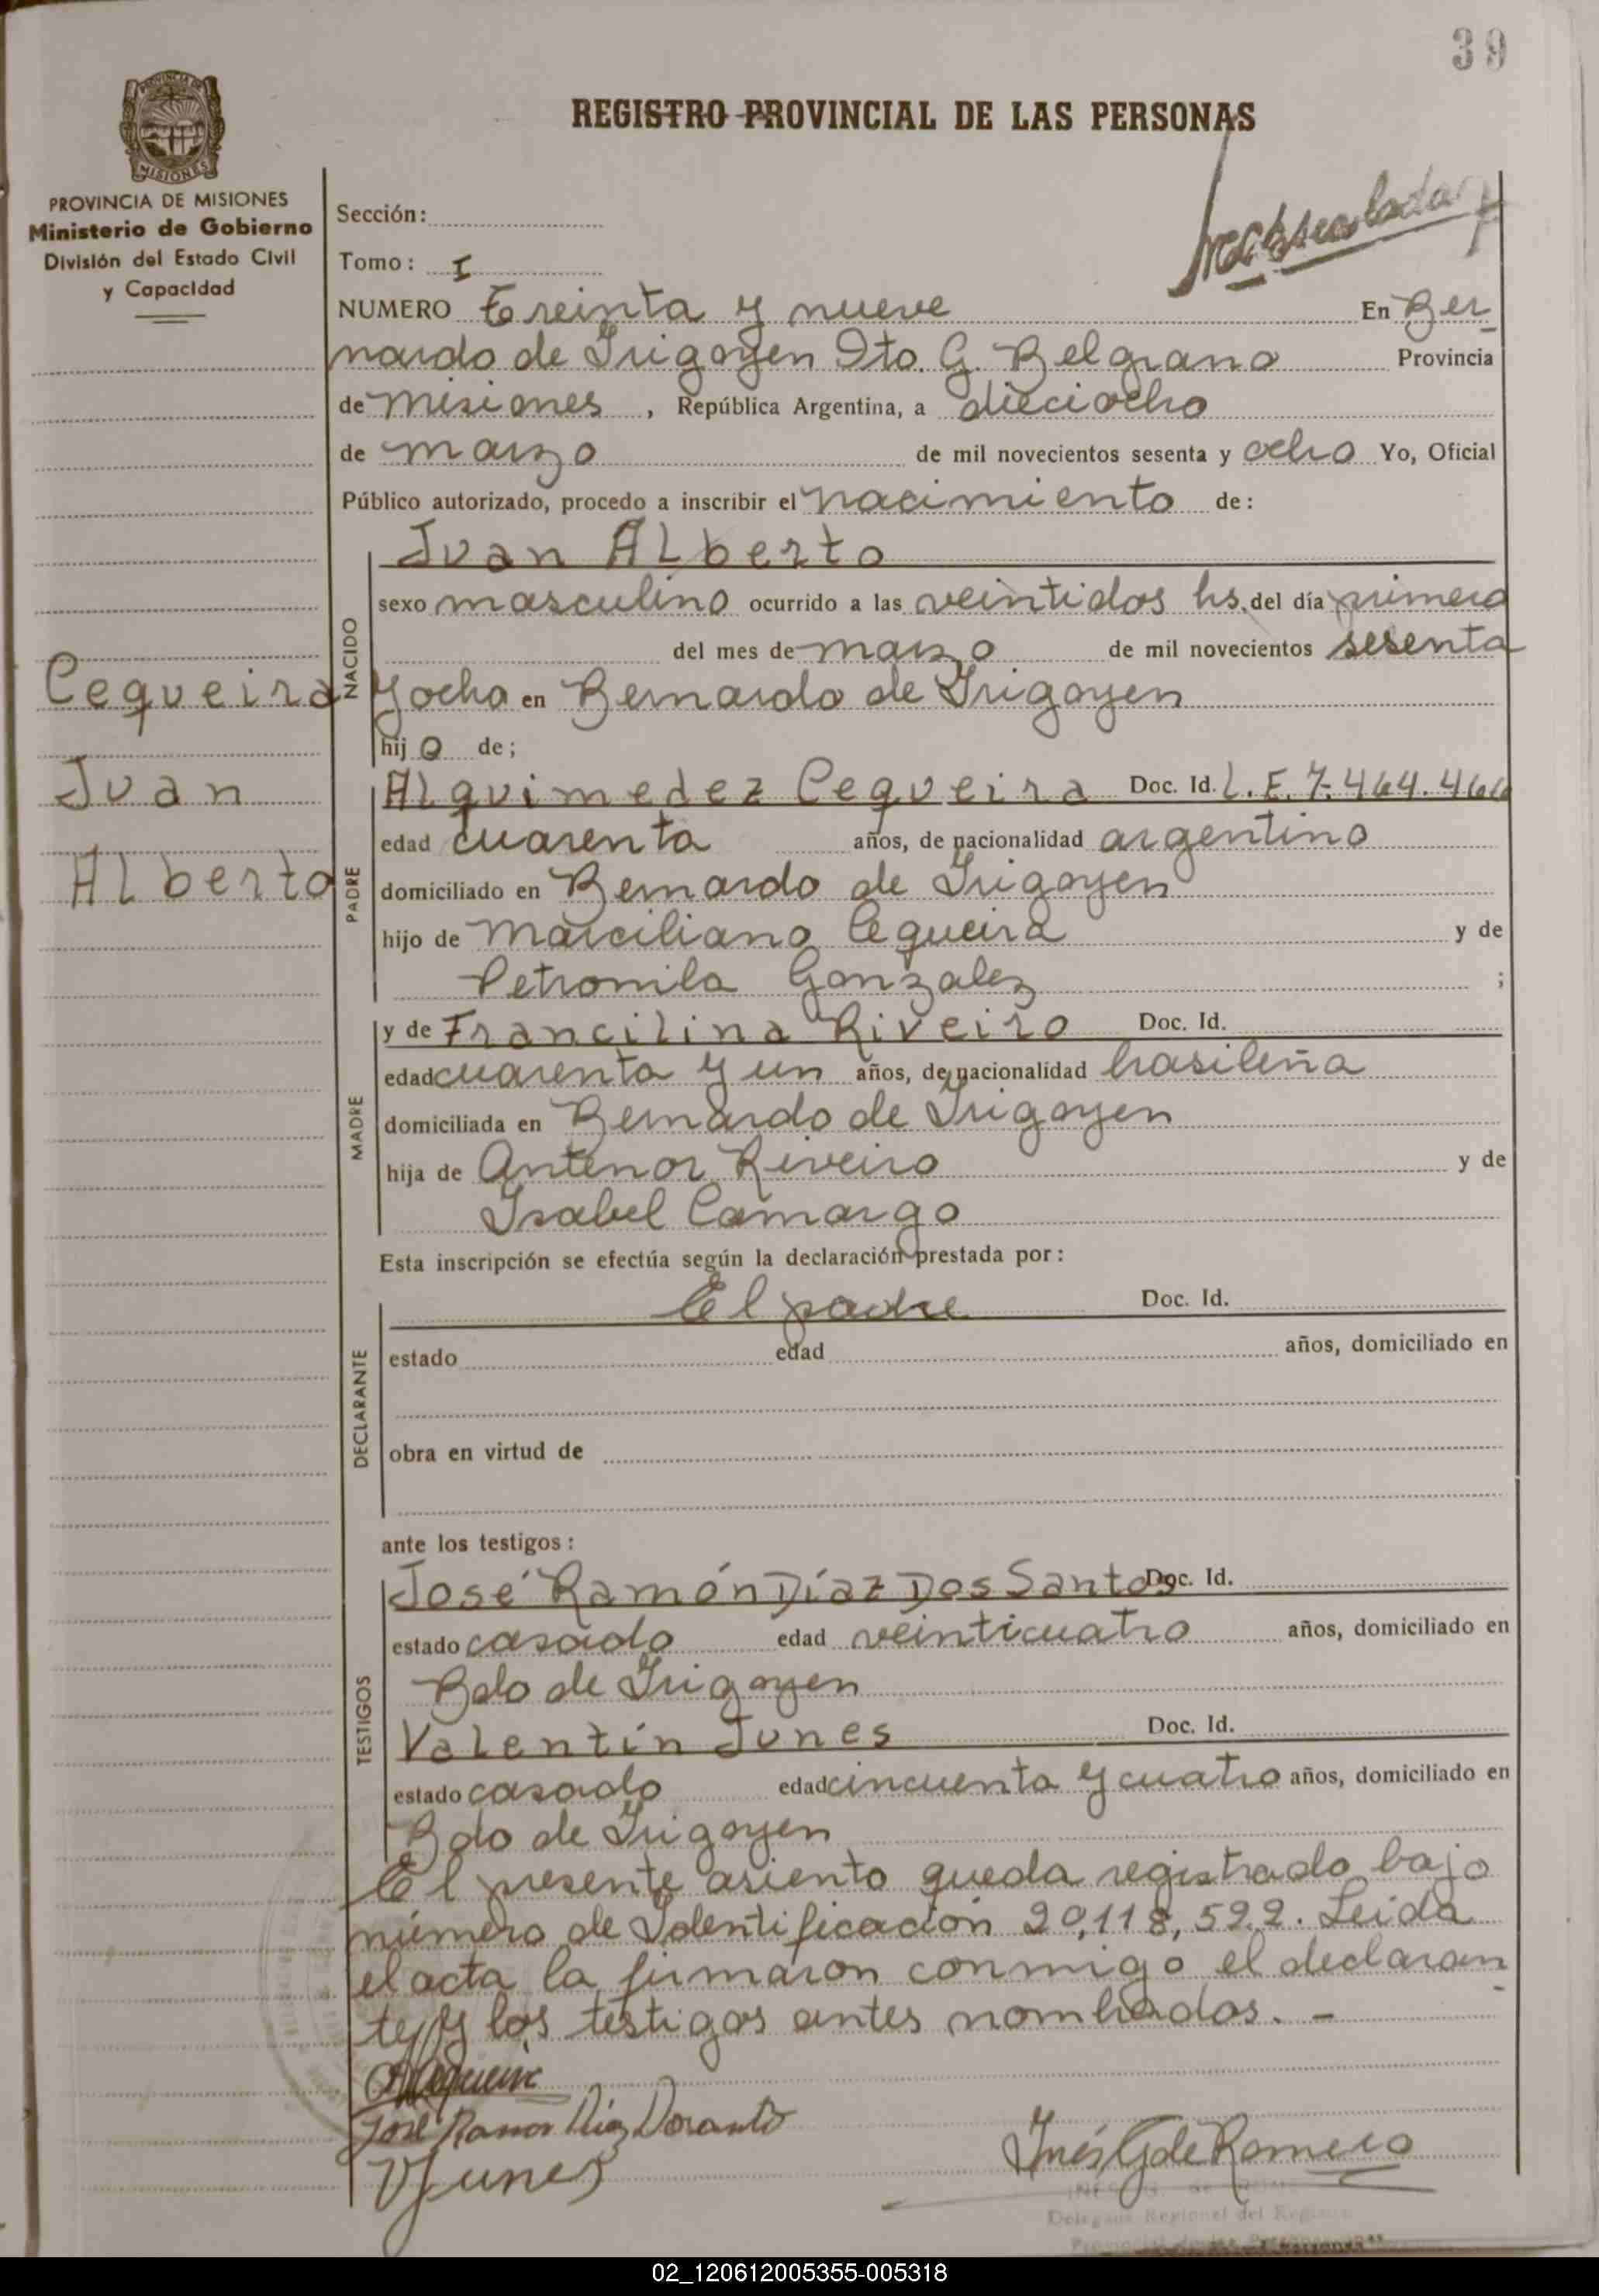 39
REGISTRO PROVINCIAL DE LAS PERSONAS
PROVINCIA DE MISIONES
Ministerio de Gobierno
División del Estado Civil
y Capacidad
Sección:
Tomo: I
NUMERO Treinta y nueve En Ber
nardo de Irigoyen Dto. G. Belgrano Provincia
de misiones, República Argentina, a dieciocho
de marzo de mil novecientos sesenta y ocho Yo, Oficial
Público autorizado, procedo a inscribir el nacimiento de:
Juan Alberto
NACIDO
sexo masculino ocurrido a las veintidos hs. del día primero
del mes de marzo de mil novecientos sesenta
y ocho en Bernardo de Irigoyen
hijo de;
Cequeira
Juan
Alberto
PADRE
Alquimedez Cequeira Doc. Id. L.E. 7.464.466
edad cuarenta años, de nacionalidad argentino
domiciliado en Bernardo de Irigoyen
hijo de Marciliano Cequeira y de
Petronila Gonzalez ;
MADRE
y de Francilina Riveiro Doc. Id.
edad cuarenta y un años, de nacionalidad brasileña
domiciliada en Bernardo de Irigoyen
hija de Antenor Riveiro y de
Isabel Camargo
Esta inscripción se efectúa según la declaración prestada por:
DECLARANTE
El padre Doc. Id.
estado edad años, domiciliado en
obra en virtud de
ante los testigos:
TESTIGOS
José Ramón Díaz Dos Santos Doc. Id.
estado casado edad veinticuatro años, domiciliado en
Bdo de Irigoyen
Valentín Junes Doc. Id.
estado casado edad cincuenta y cuatro años, domiciliado en
Bdo de Irigoyen
El presente asiento queda registrado bajo
número de Identificación 20,118,592. Leida
el acta la firmaron conmigo el declaran
te y los testigos antes nombrados. -
José Ramon Diaz Dosanto
VJunes
Inés G de Romero
Delegada Regional del Registro
02_120612005355-005318